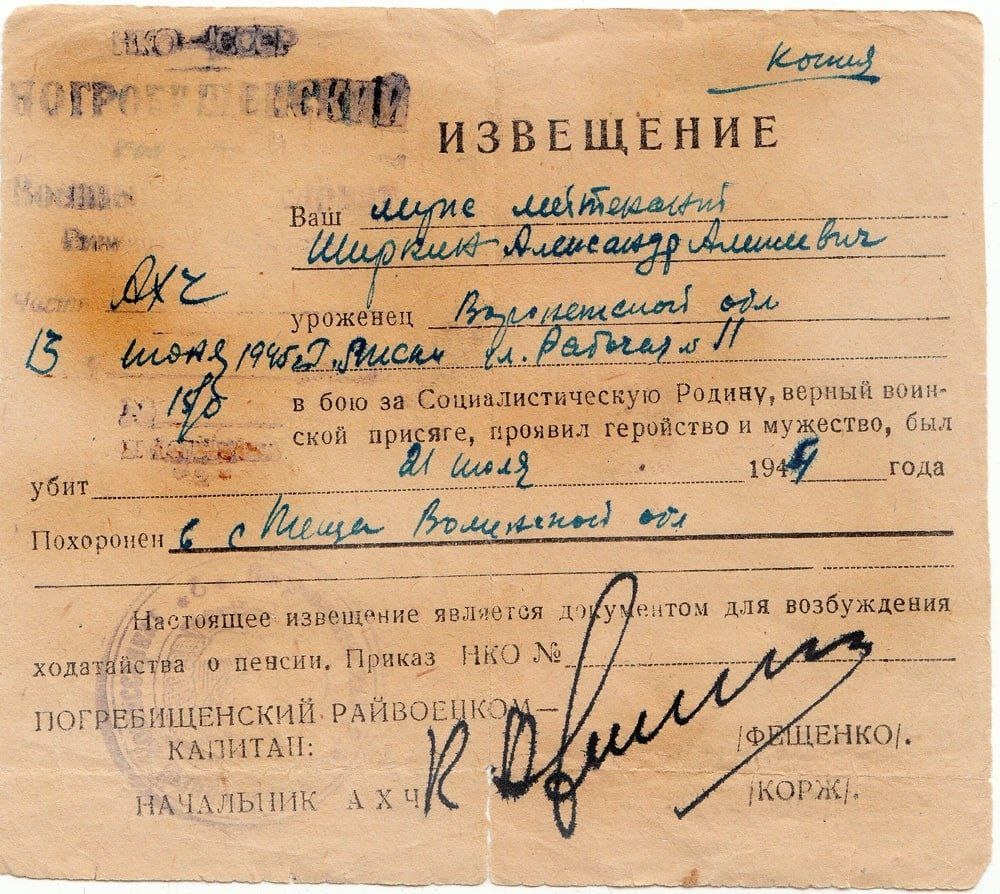 НКО СССР
ПОГРЕБИЩЕНСКИЙ
Копия
ИЗВЕЩЕНИЕ
Ваш муж лейтенант
Ширкин Александр Алексеевич
АХЧ
уроженец Воронежской обл
13 июня 1945 г. Лиски ул. Рабочая № 11
в бою за Социалистическую Родину, верный воин-
ской присяге, проявил геройство и мужество, был
убит 21 июля 1944 года
Похоронен в с Волынской обл
Настоящее извещение является документом для возбуждения
ходатайства о пенсии. Приказ НКО №
ПОГРЕБИЩЕНСКИЙ РАЙВОЕНКОМ—
КАПИТАН: /ФЕЩЕНКО/.
НАЧАЛЬНИК АХЧ /КОРЖ/.